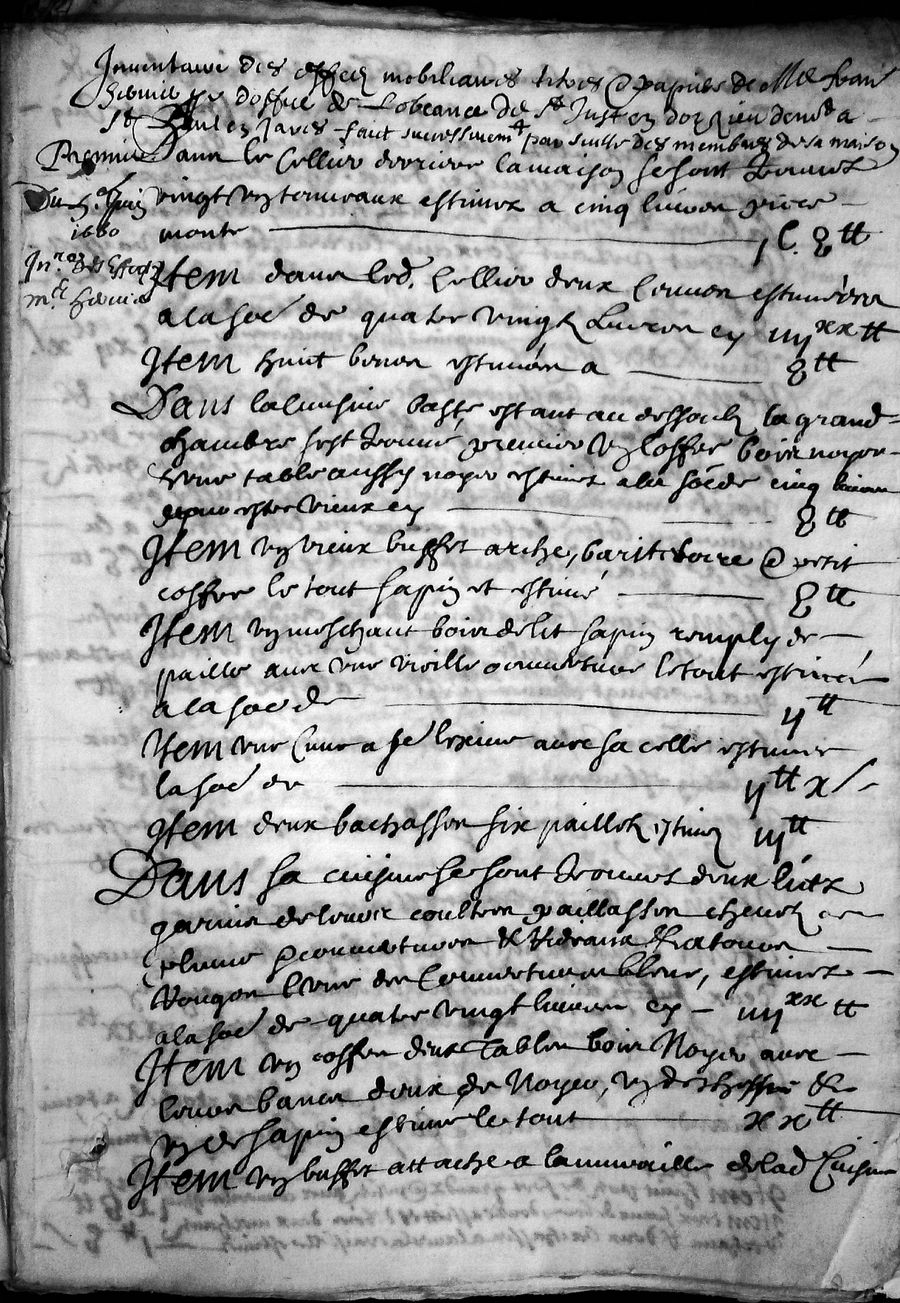 Inventaire des effects mobiliaires titres @ papiers de Me
d'office de Lobeance de St Just en doizieu demt a
St Paul en Jares faict successivemt par suitte des membres de sa maison
Premier Dans le Cellier derriere la maison se sont trouvés
Du
vingt un tonneaux estimez a cinq livres piece
1680 monte C. tt
Inre des effectz
me
Item dans led. Cellier deux Cuves estimées
a la soe de quatre vingtz livres cy iiijxx tt
Item huict benes estimées a 8tt
Dans la cuisine basse estant au dessoubz la grand
chambre sest trouvé premier un coffre bois noyer
une table aussy noyer estimez a la soe de cinq livres
pour estre vieux cy tt
Item un vieux buffet arche, bariteloire @ petit
coffre le tout sapin et estimé tt
Item un meschant bois de lit sapin remply de
paille avec une vieille couverture le tout estimé
a la soe de ij tt
Item une Cuve a fe lexive avec sa celle estimée
la soe de ij tt x s
Item deux bachasses six paillotz estimez iij tt
Dans sa cuisine se sont trouvés deux lictz
garnis de leurs coultres paillasses chevetz de
plume couvertures & Rideaux
Rouges lune des Couvertures bleue, estimez
a la soe de quatre vingt livres cy iiijxx tt
Item un coffre deux Tables bois Noyer avec
leurs bancs deux de Noyer, un &
un de sapin estimé le tout xx tt
Item un buffet attaché a la muraille de lad Cuisine